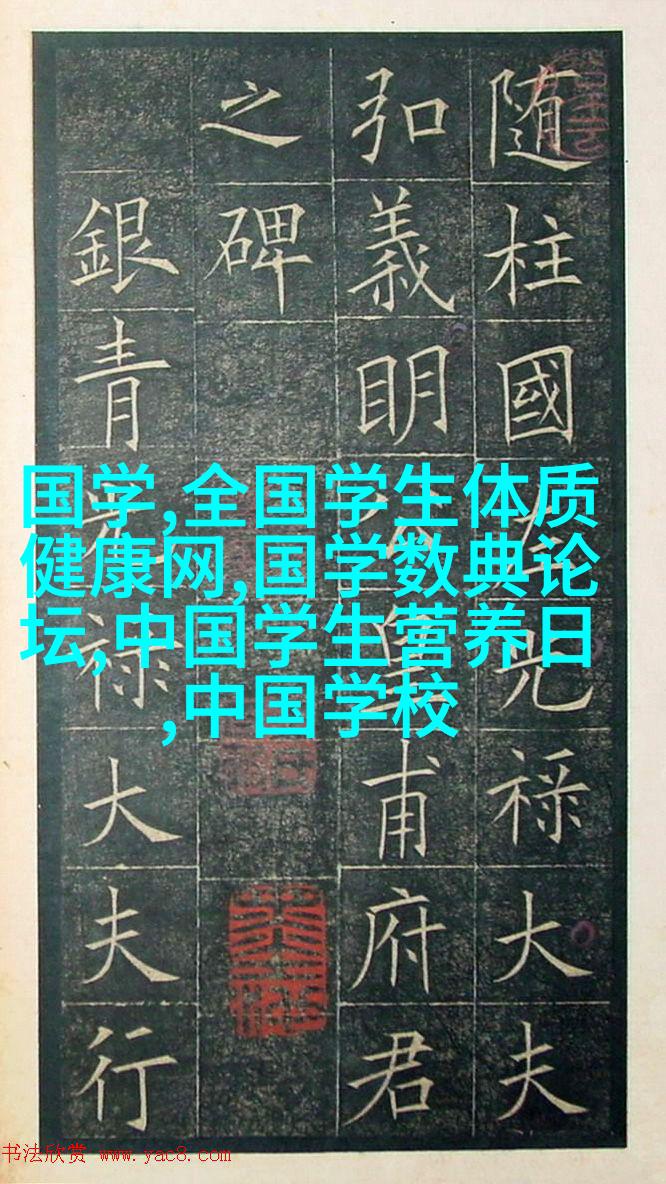 随柱國左光禄大夫
弘義明公皇甫府君
之碑
銀青光禄大夫行
国学,全国学生体质
健康网,国学数典论
坛,中国学生营养日
,中国学校
书法欣赏 www.yac8.com